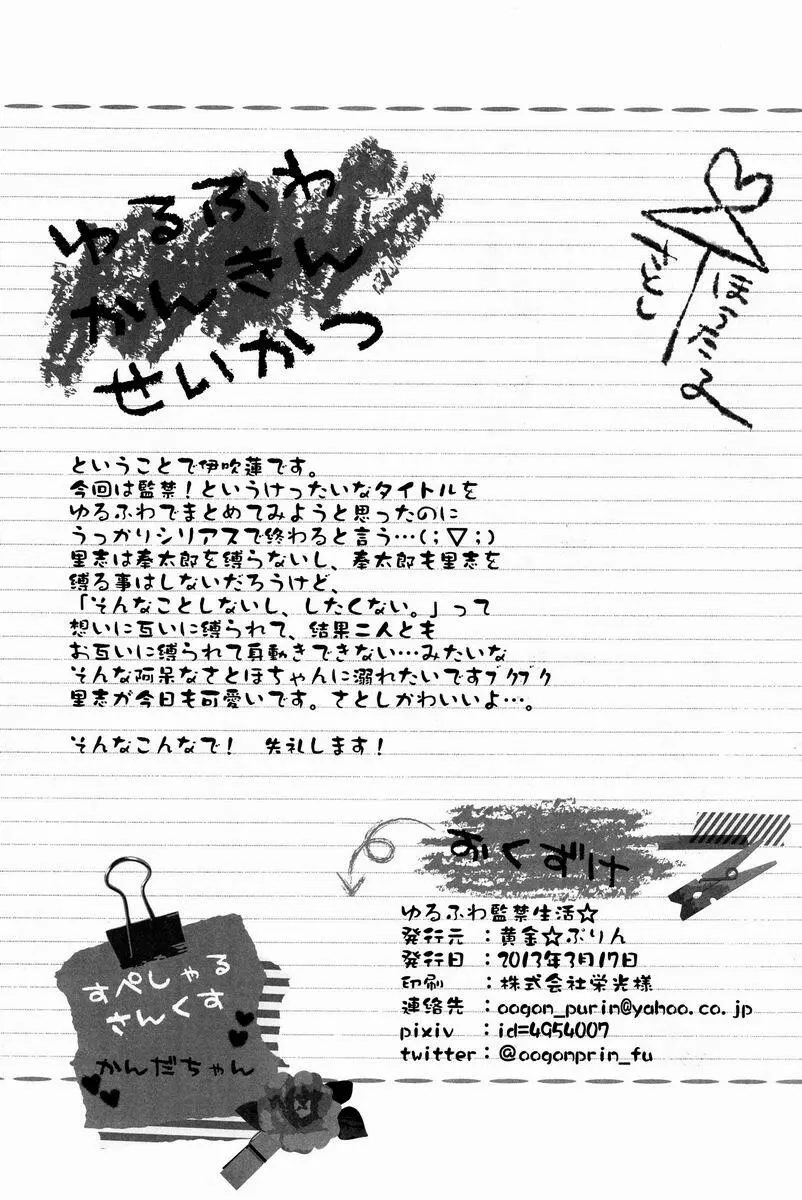 ゆるふわ
かんきん
せいかつ
さとし
ほうたる
ということで伊吹蓮です。
今回は監禁！というけったいなタイトルを
ゆるふわでまとめてみようと思ったのに
うっかりシリアスで終わると言う…(；▽；)
里志は奉太郎を縛らないし、奉太郎も里志を
縛る事はしないだろうけど、
「そんなことしないし、したくない。」って
想いに互いに縛られて、結果二人とも
お互いに縛られて身動きできない…みたいな
そんな阿呆なさとほちゃんに溺れたいですブクブク
里志が今日も可愛いです。さとしかわいいよ…。
そんなこんなで！　失礼します！
おくづけ
ゆるふわ監禁生活☆
発行元　：黄金☆ぷりん
発行日　：2013年3月17日
印刷　　：株式会社栄光様
連絡先　：oogon_purin@yahoo.co.jp
pixiv　：id=4954007
twitter：@oogonprin_fu
すぺしゃる
さんくす
かんだちゃん